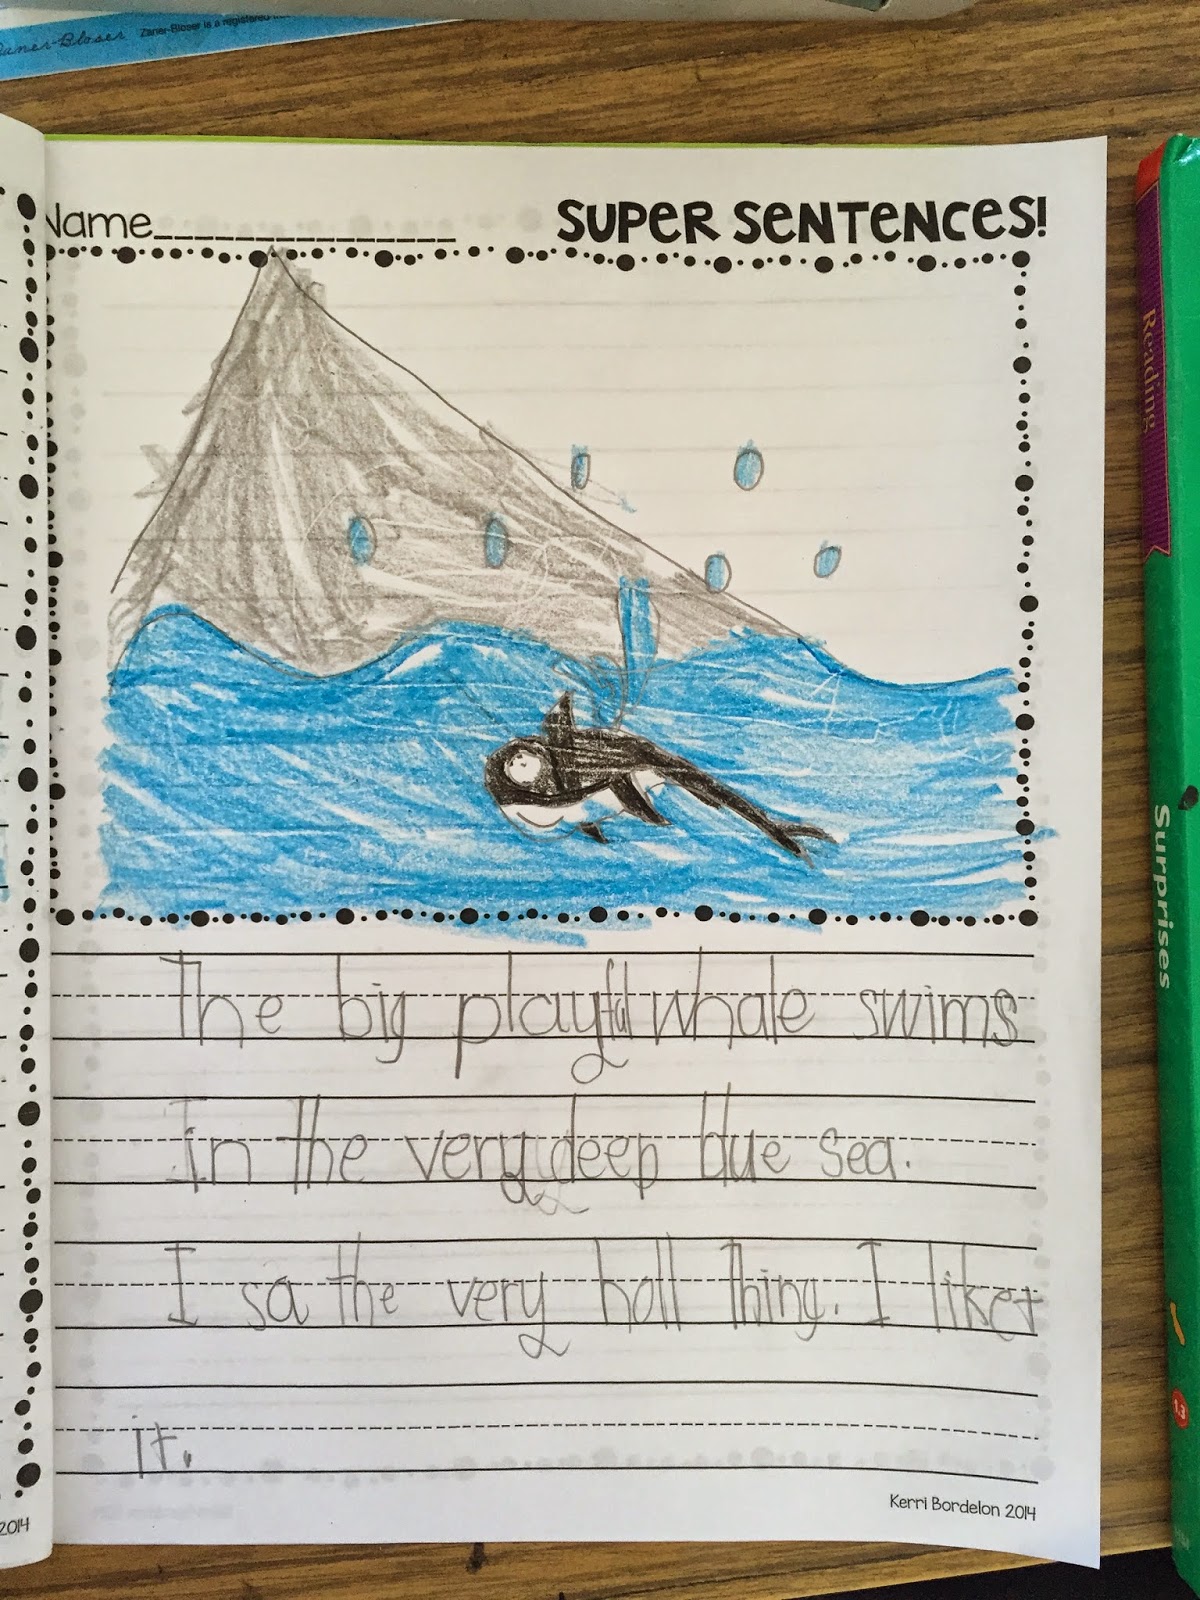 Zaner-Bloser Zaner-Bloser is a registered
Name______________ SUPER SENTENCES!
The big playful whale swims
In the very deep blue sea.
I sa the very holl thing. I liket
it.
Kerri Bordelon 2014
2014
Reading
Surprises
1.3